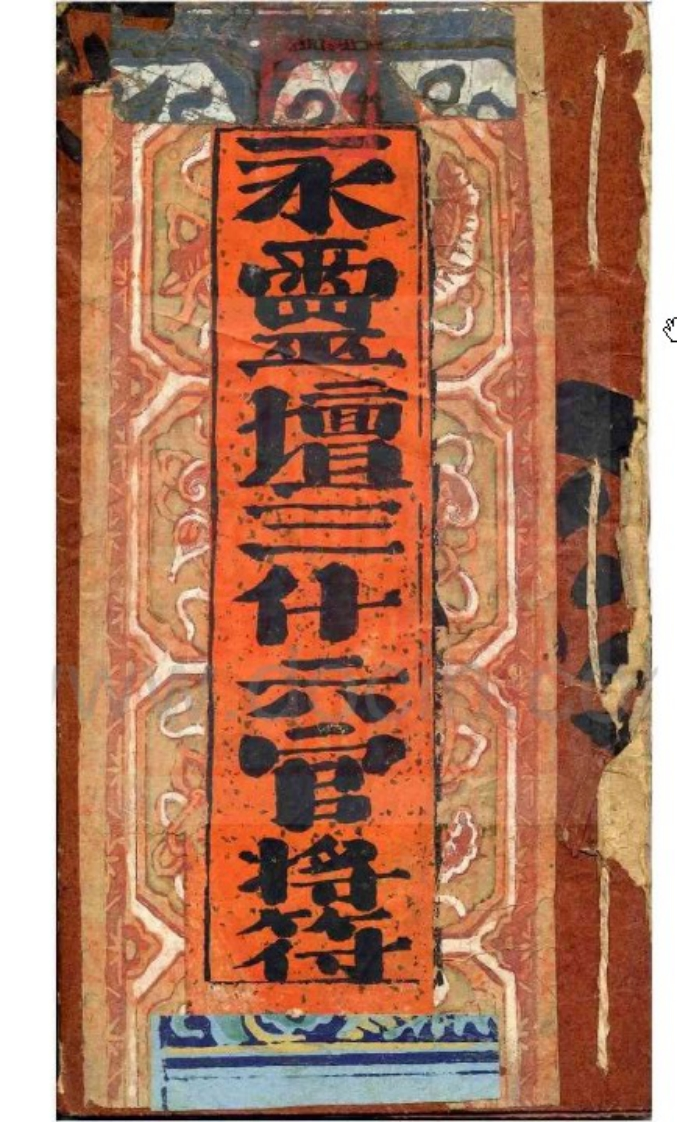 永靈壇三什六官將符